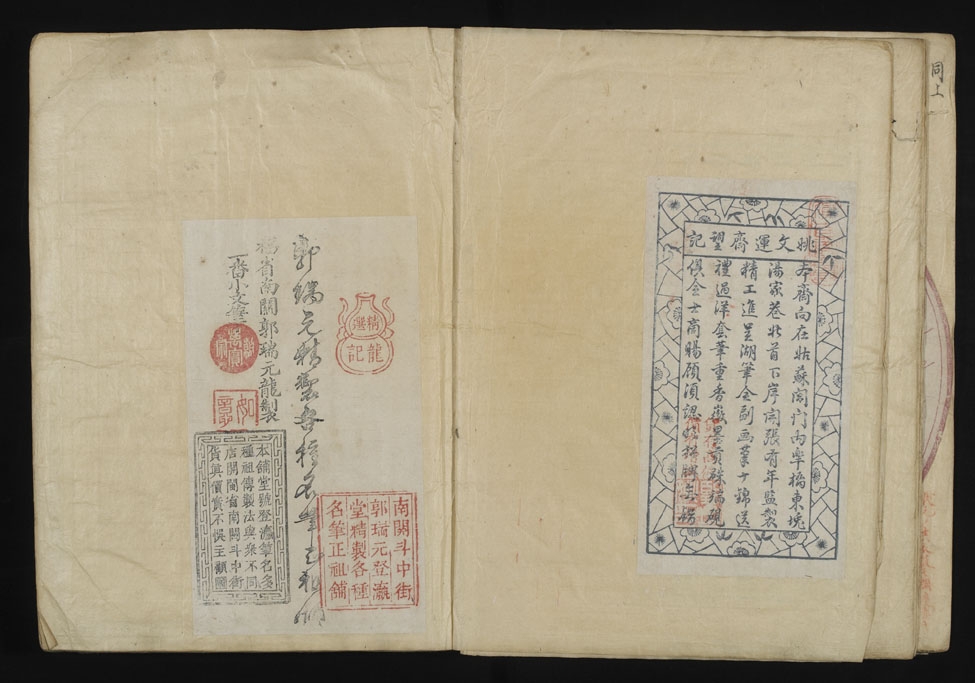 同上
姚文運齋望記
本齋向在姑蘇閶门內皋橋東堍
湯家巷北首下岸開張有年監製
精工進呈湖筆全副画筆十錦送
禮過洋套筆重香徽墨貢硃端硯
俱全士商賜顧須認

精選
龍記
郭端元精製各種名筆
福省南關郭瑞元龍製
一番小文筆
如意
南関斗中街
郭瑞元登瀛
堂精製各種
名筆正祖舖
本舖堂號登瀛筆名多
種祖傳製法與衆不同
店開閩省南関斗中街
貨真價實不悞主顧圖